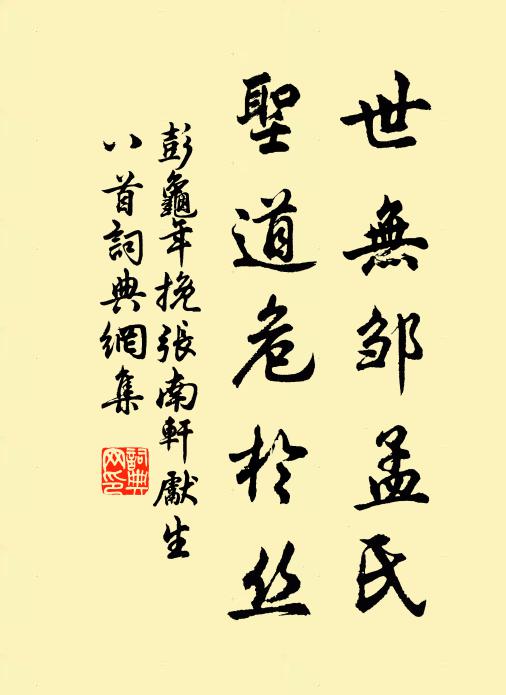 世無邹孟氏
聖道危於丝
彭龜年挽張南軒獻生
八首詞典網集
詞典网印